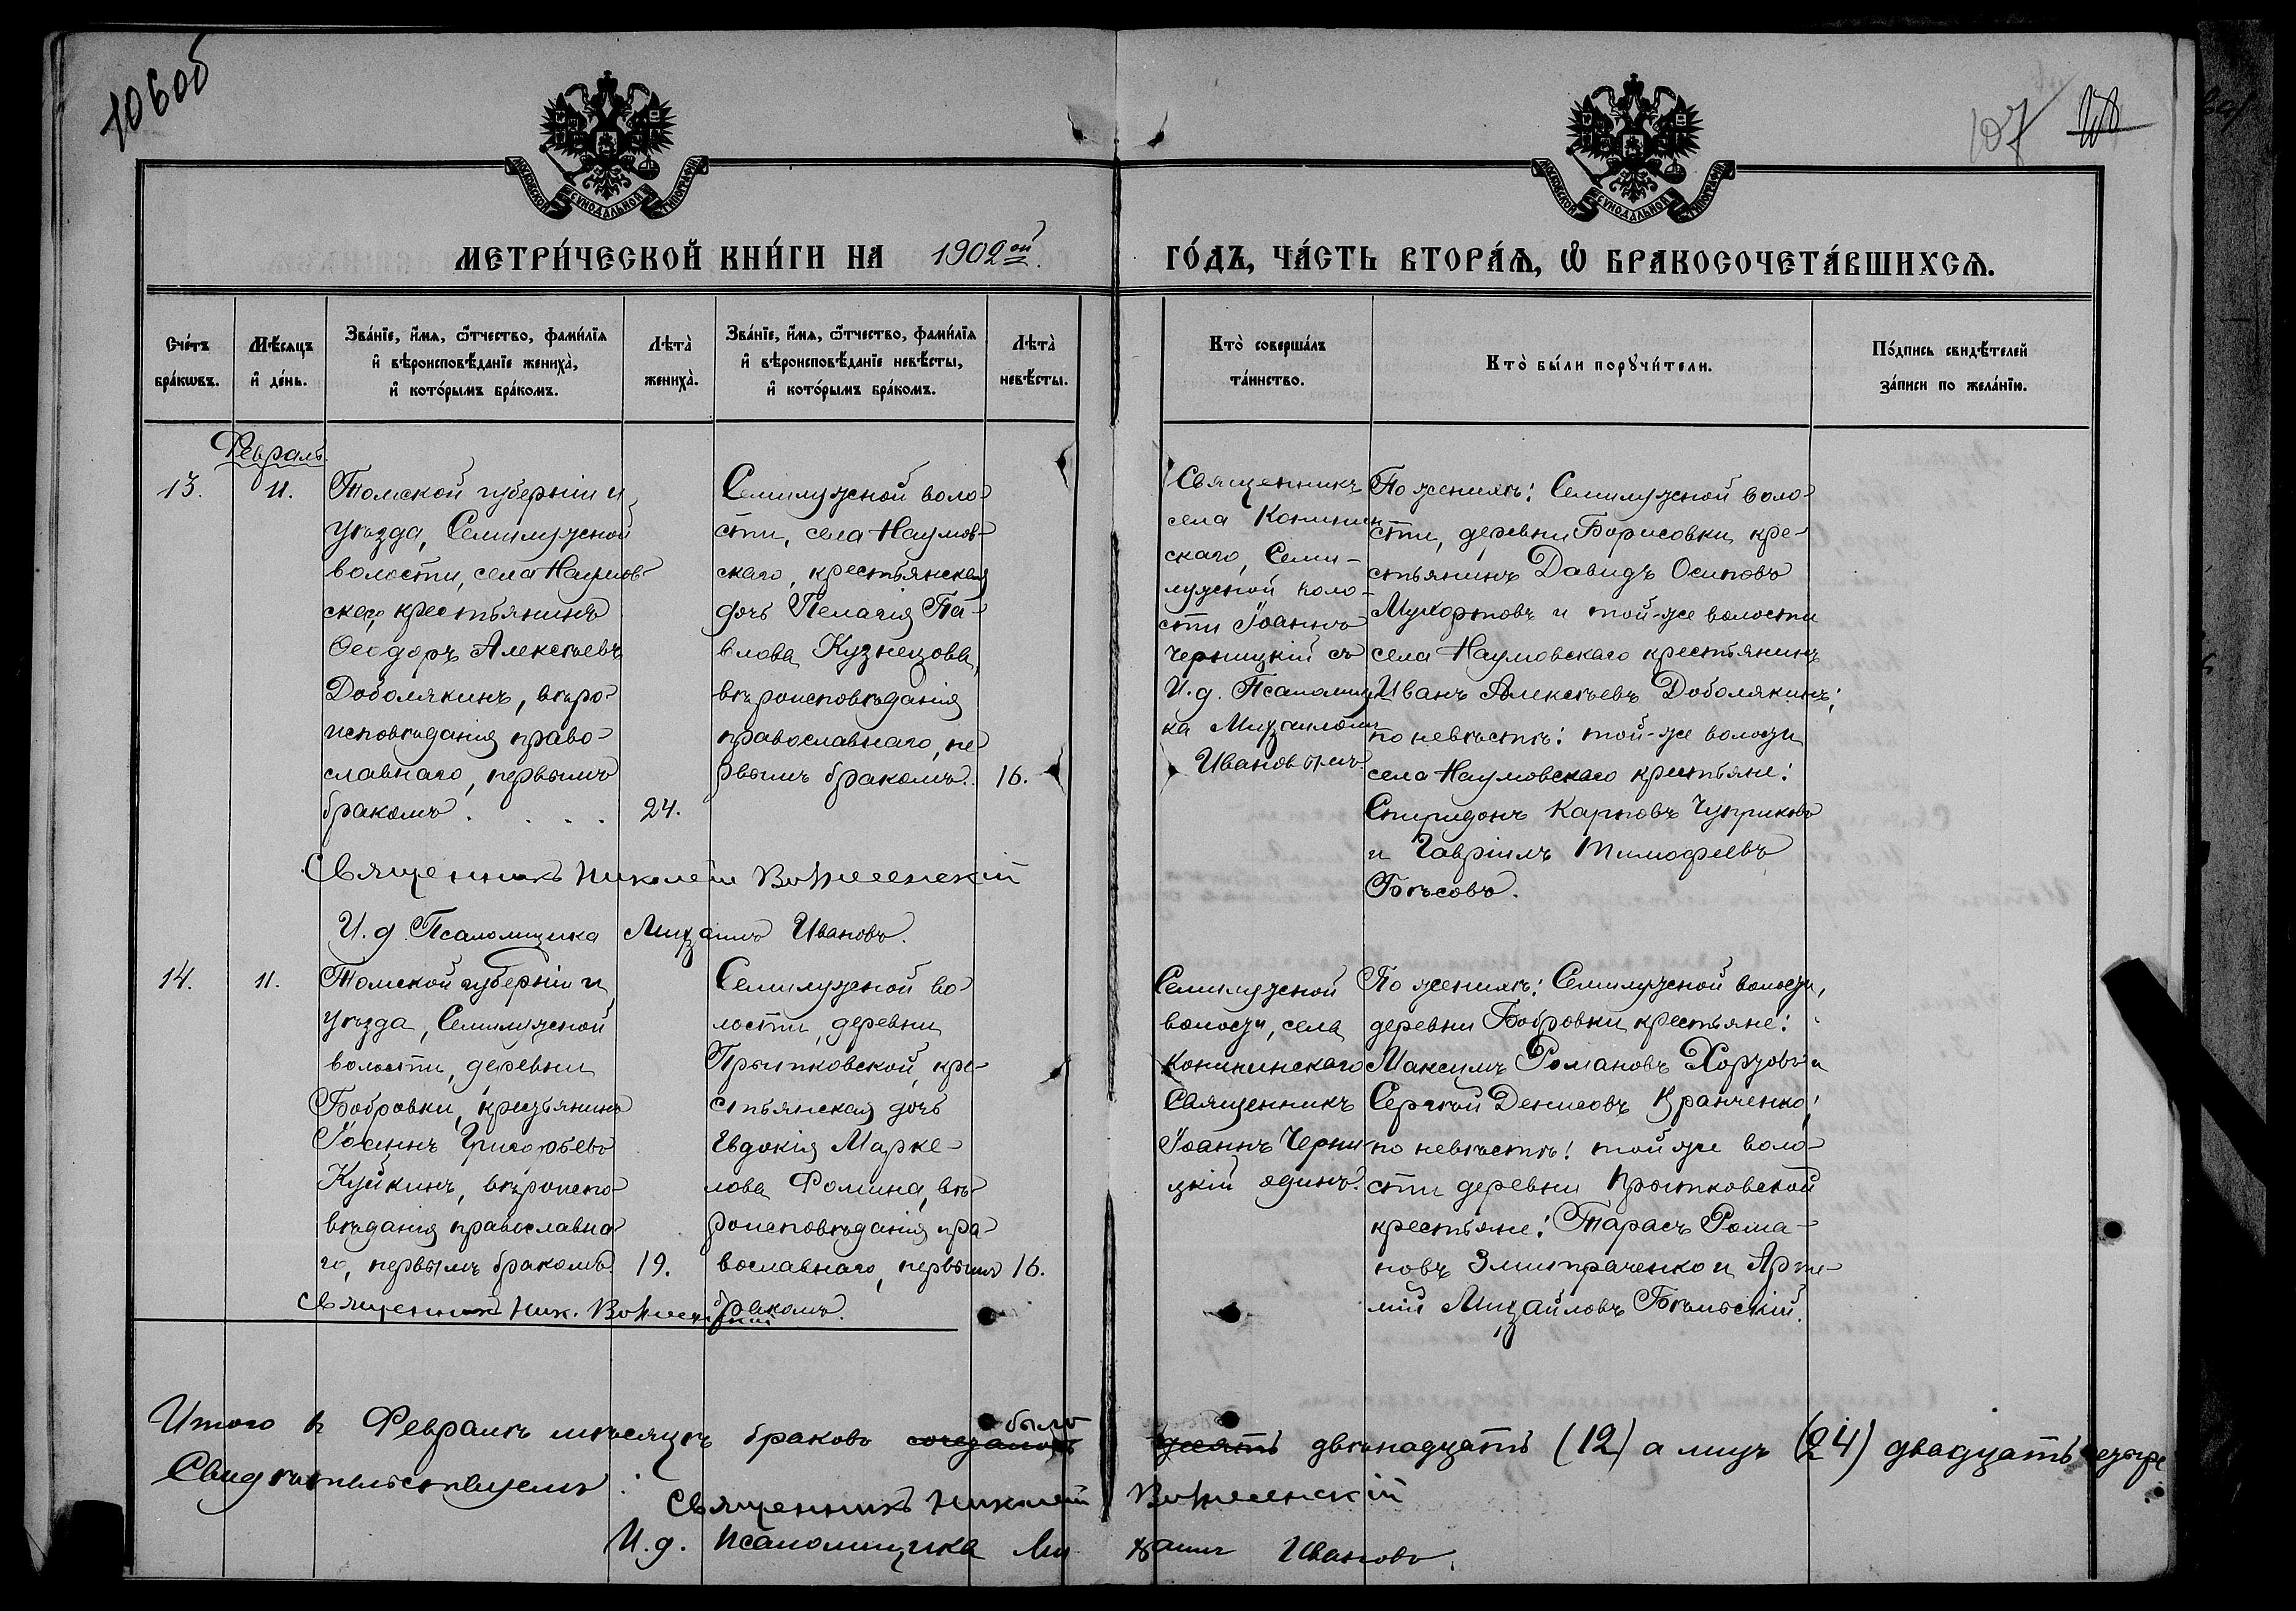 106об
107
МОСКОВСКОЙ СѴНОДАЛЬНОЙ ТИПОГРАФІИ
МОСКОВСКОЙ СѴНОДАЛЬНОЙ ТИПОГРАФІИ
МЕТРИ́ЧЕСКОЙ КНИ́ГИ НА 1902ой
ГО́ДЪ, ЧА́СТЬ ВТОРА́Ѧ, Ѡ҆ БРАКОСОЧЕТА́ВШИХСѦ.
Сче́тъ
бра́кωвъ.
Мѣ́сѧцъ
и҆ де́нь.
Зва́нїе, и҆́мѧ, ѻ҆́тчество, фами́лїѧ
и҆ вѣроисповѣ́данїе жениха̀,
и҆ кото́рымъ бра́комъ.
Лѣта̀
жениха̀.
Зва́нїе, и҆́мѧ, ѻ҆́тчество, фами́лїѧ
и҆ вѣроисповѣ́данїе невѣ́сты,
и҆ кото́рымъ бра́комъ.
Лѣта̀
невѣ́сты.
Кто̀ соверша́лъ
та́инство.
Кто̀ бы́ли порꙋчи́тели.
По́дпись свидѣ́телей
за́писи по жела́нїю.
Февраль
13.
11.
Томской губерніи и
уѣзда, Семилужной
волости, села Наумов-
скаго, крестьянинъ
Ѳеодоръ Алексѣевъ
Доболякинъ, вѣро-
исповѣданія право-
славнаго, первымъ
бракомъ . . . .
24.
Семилужной воло-
сти, села Наумов-
скаго, крестьянская
дочь Пелагія Па-
влова Кузнецова,
вѣроисповѣданія
православнаго, пе-
рвымъ бракомъ.
16.
Священникъ
села Конинин
скаго, Семи-
лужной воло-
сти Іоаннъ
Черницкій съ
И. д. Псаломщи
ка Михаиломъ
Ивановымъ.
По женихѣ: Семилужной воло-
сти, деревни Борисовки, кре-
стьянинъ Давидъ Осиповъ
Мухортовъ и той-же волости
села Наумовскаго крестьянинъ
Иванъ Алексѣевъ Доболякинъ;
по невѣстѣ: той-же волости
села Наумовскаго крестьяне:
Спиридонъ Карповъ Чуприковъ
и Гавріилъ Тимофеевъ
Бѣсовъ.
Священникъ Николай Вознесенскій
И. д. Псаломщика Михаилъ Ивановъ.
14.
11.
Томской губерніи и
уѣзда, Семилужной
волости, деревни
Бобровки, крестьянинъ
Іоаннъ Григорьевъ
Куйкинъ, вѣроиспо-
вѣданія православна-
го, первымъ бракомъ.
19.
Семилужной во-
лости, деревни
Прытковской, кре-
стьянская дочь
Евдокія Марке-
лова Фомина, вѣ-
роисповѣданія пра-
вославнаго, первымъ
бракомъ.
16.
Семилужной
волости, села
Конининскаго
Священникъ
Іоаннъ Черни
цкій одинъ.
По женихѣ: Семилужной волости,
деревни Бобровки, крестьяне:
Максимъ Романовъ Хорховъ и
Сергѣй Денисовъ Кранченко;
по невѣстѣ: той же воло-
сти деревни Прытковской
крестьяне: Тарасъ Рома-
новъ Змитраченко и Арте-
мій Михайловъ Бѣльскій.
Священникъ Ник. Вознесенскій
Итого въ Февралѣ мѣсяцѣ браковъ было двѣнадцать (12) а лицъ (24) двадцать четыре
Свидѣтельствуемъ:
Священникъ Николай Вознесенскій
И. д. псаломщика Михаилъ Ивановъ.